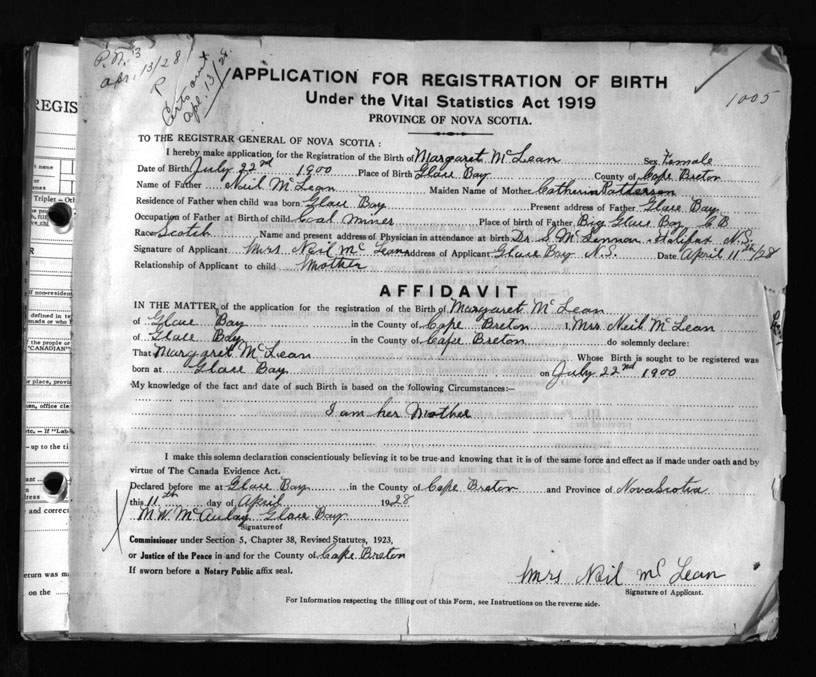 P.N. 3
Apr. 13/28
P
Apl. 13/28
1005
APPLICATION FOR REGISTRATION OF BIRTH
Under the Vital Statistics Act 1919
PROVINCE OF NOVA SCOTIA.
TO THE REGISTRAR GENERAL OF NOVA SCOTIA :
I hereby make application for the Registration of the Birth of Margaret McLean Sex Female
Date of Birth July 22nd 1900 Place of Birth Glace Bay County of Cape Breton
Name of Father Neil McLean Maiden Name of Mother Catherin Patterson
Residence of Father when child was born Glace Bay Present address of Father Glace Bay
Occupation of Father at Birth of child Coal Miner Place of birth of Father Big Glace Bay C B
Race Scotch Name and present address of Physician in attendance at birth Dr. S. McLennan Halifax N.S.
Signature of Applicant Mrs Neil McLean Address of Applicant Glace Bay N.S. Date April 11th/28
Relationship of Applicant to child Mother
AFFIDAVIT
IN THE MATTER of the application for the registration of the Birth of Margaret McLean
of Glace Bay in the County of Cape Breton I, Mrs Neil McLean
of Glace Bay in the County of Cape Breton do solemnly declare:
That Margaret McLean Whose Birth is sought to be registered was
born at Glace Bay on July 22nd 1900
My knowledge of the fact and date of such Birth is based on the following Circumstances:—
I am her Mother
I make this solemn declaration conscientiously believing it to be true and knowing that it is of the same force and effect as if made under oath and by
virtue of The Canada Evidence Act.
Declared before me at Glace Bay in the County of Cape Breton and Province of Nova Scotia
this 11th day of April 1928
M.W. McAulay Glace Bay
Signature of
Commissioner under Section 5, Chapter 38, Revised Statutes, 1923,
or Justice of the Peace in and for the County of Cape Breton
If sworn before a Notary Public affix seal.
Mrs Neil McLean
Signature of Applicant.
For Information respecting the filling out of this Form, see Instructions on the reverse side.